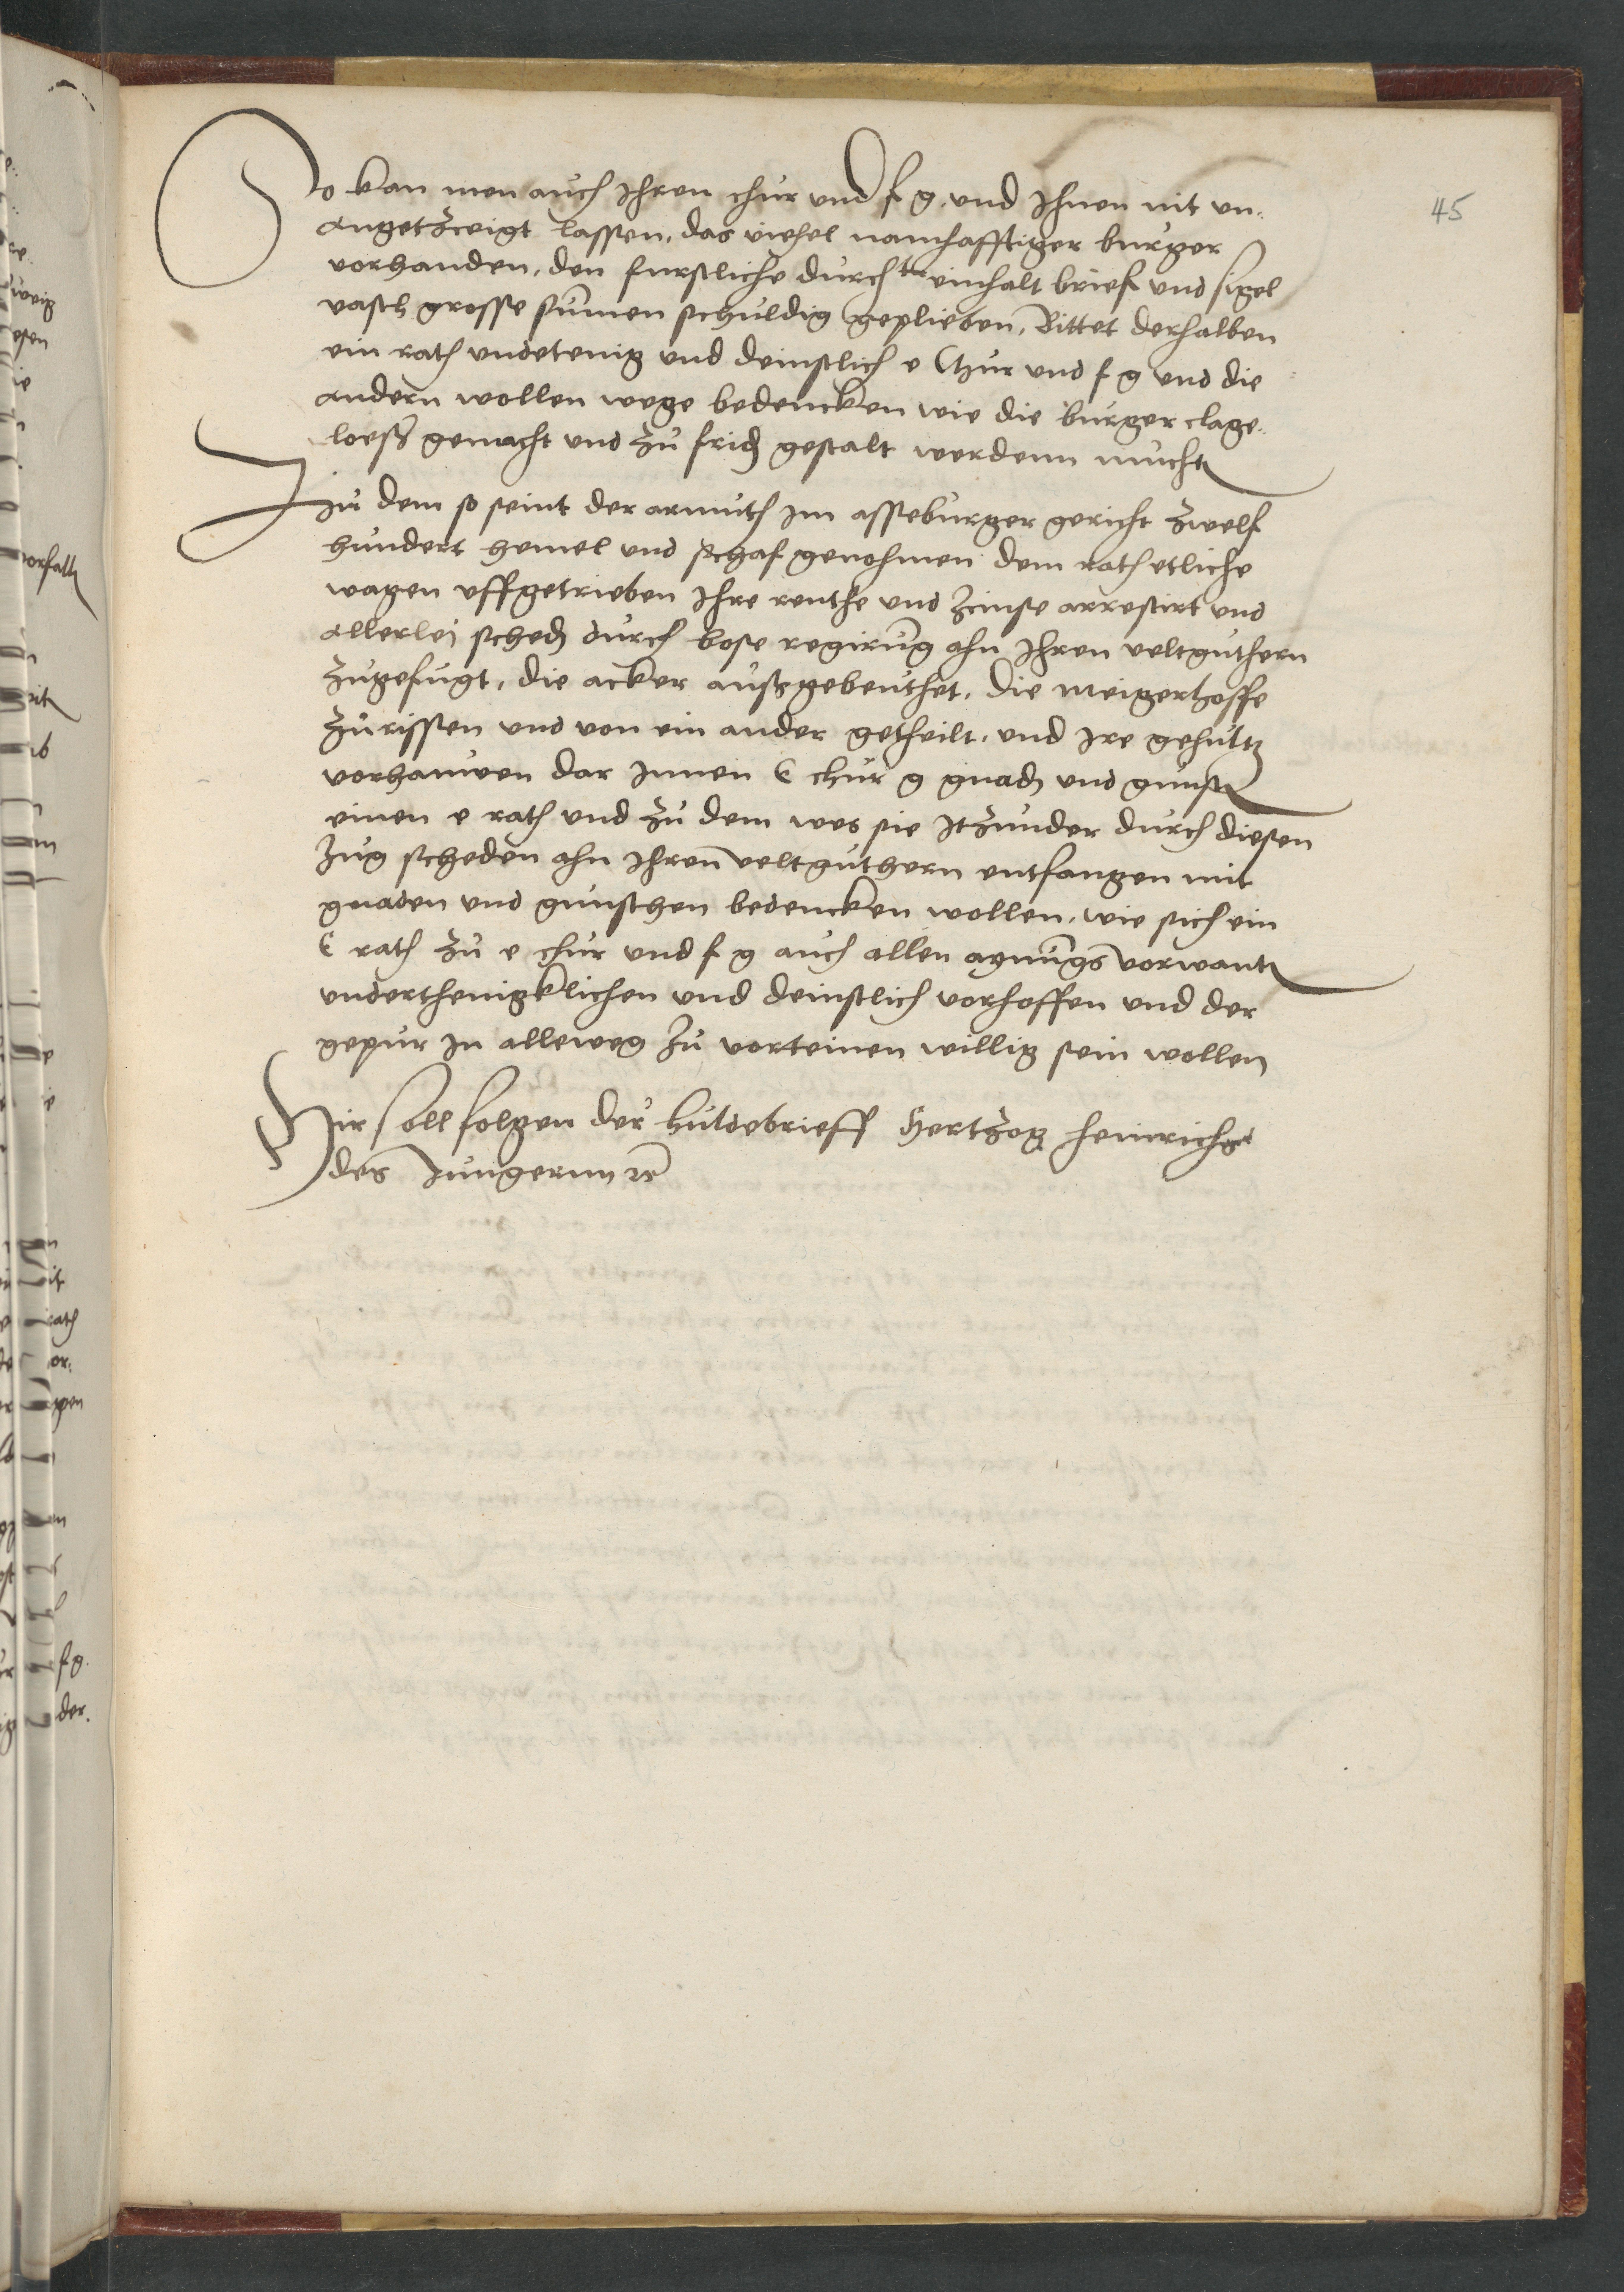 45
So kan men auch Ihren chur und f g. und Ihnen nit un.
angetzeigt lassen, das viehel namhafftiger burger
vorhanden, den furstliche durch einhalt brief und sigel
vasth grosse summen schuldig geplieben, Bittet derhalben
ein rath undetenig und deinstlich e Chur und f g und die
andern wollen wege bedencken wie die burger clage.
loeß gemacht und zu frid gestalt werdenn mucht
Zu dem so seint der armuth Im asseburger gericht zwelf
hundert hemel und schaf genohmen dem rath etliche
wagen uffgetrieben Ihre renthe und Zeinse arrestirt und
allerlei sched durch bose regirung ahn Ihren veltguthern
zugefugt, die acker außgebeuthet, die meigerhoffe
zurissen und von ein ander getheilt, und Ire gehultz
vorhauwen dar Innen E chur g gnad und gunst
einen e rath und zu dem wes sie Itzunder durch diesen
Zug scheden ahn Ihren veltguthern entfangen mit
gnaden und gunschen bedencken wollen, wie sich ein
E rath zu e chur und f g auch allen aynungs vorwant
underthenigklichen und deinstlich vorhoffen und der
gepur In alleweg zu vorteinen willig sein wollen
Hir soll folgen der huldebrieff Hertzog Heinrichs
des Jungernn